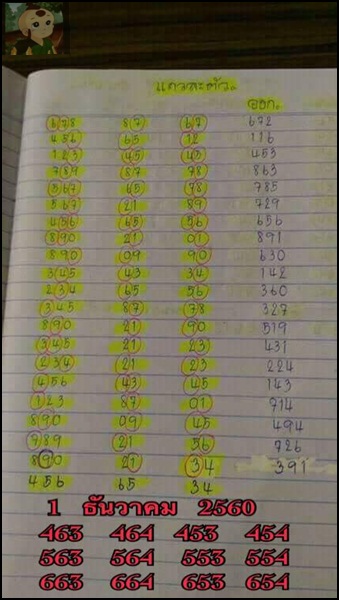 แถวละตัว
ออก
678 87 67 672
456 65 12 116
123 45 45 453
789 87 78 863
567 65 78 785
567 21 89 729
456 65 56 656
890 21 01 891
890 09 90 630
345 43 34 142
234 65 56 360
345 87 78 327
890 21 90 519
345 21 23 431
234 21 23 224
456 43 45 143
123 87 01 714
890 09 45 494
789 21 56 726
890 21 34 391
456 65 34
1 ธันวาคม 2560
463 464 453 454
563 564 553 554
663 664 653 654